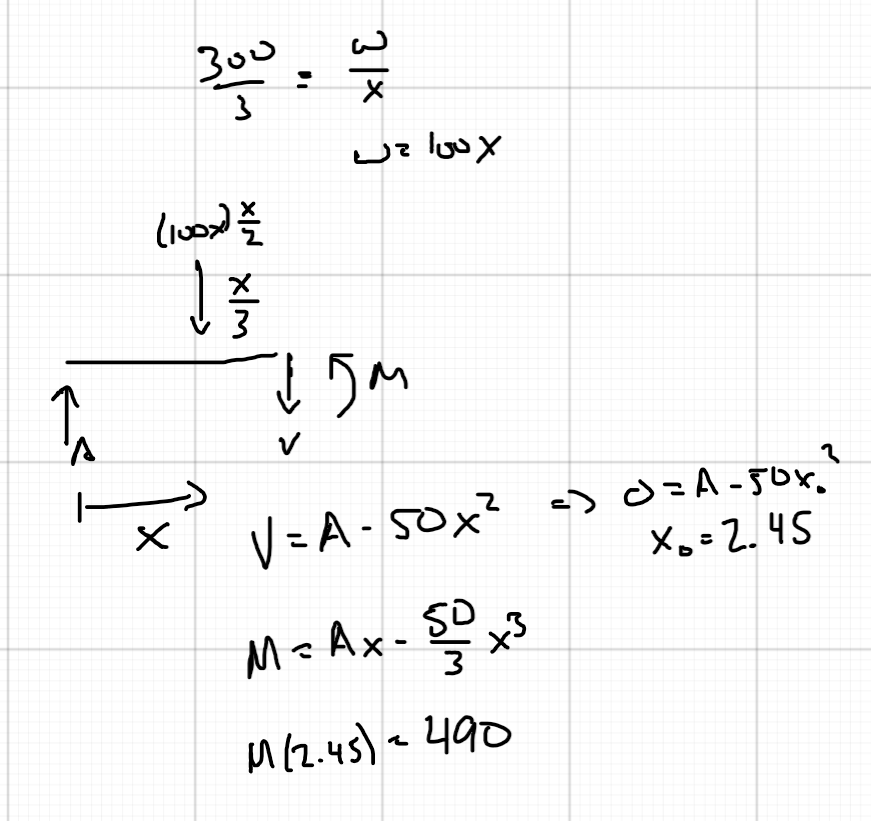 300/3 = ω/x
ω = 100x
(100x) x/2
x/3
M
A
V
x
V = A - 50x² => 0 = A - 50x₀²
x₀ = 2.45
M = Ax - 50/3 x³
M(2.45) = 490